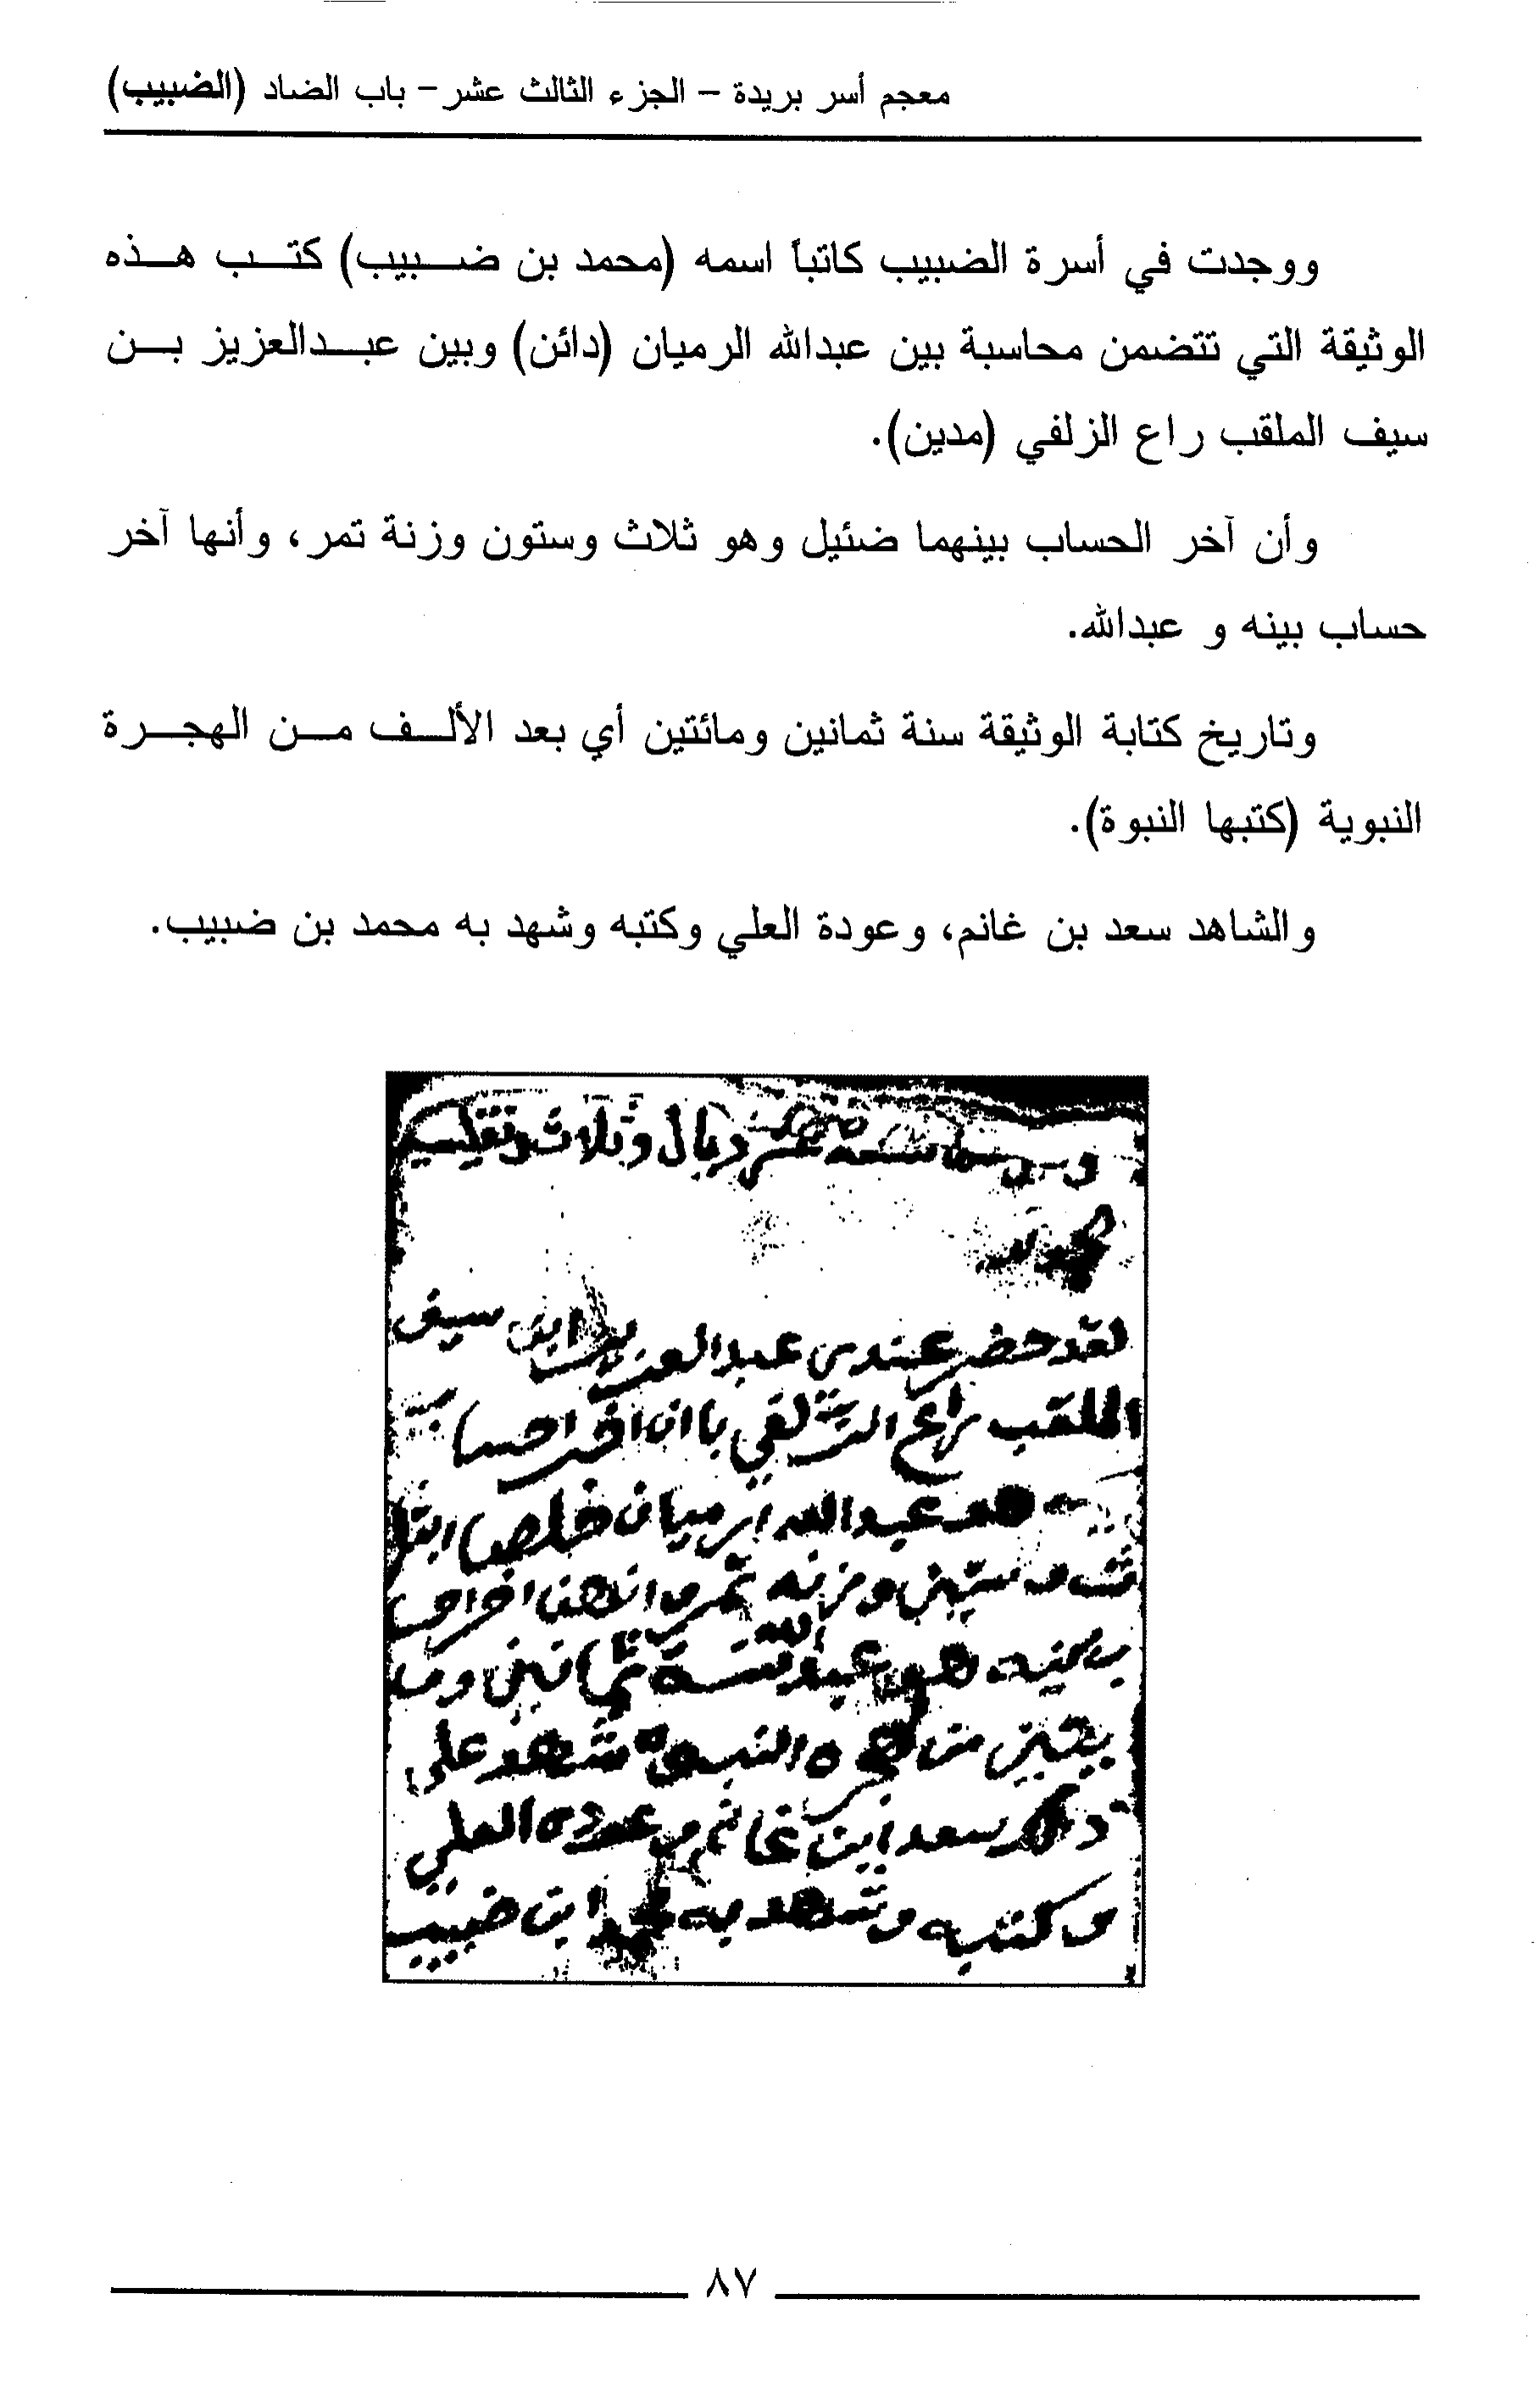 معجم أسر بريدة – الجزء الثالث عشر– باب الضاد (الضبيب)
ووجدت في أسرة الضبيب كاتباً اسمه (محمد بن ضبيب) كتب هذه
الوثيقة التي تتضمن محاسبة بين عبدالله الرميان (دائن) وبين عبدالعزيز بن
سيف الملقب راع الزلفي (مدين).
وأن آخر الحساب بينهما ضئيل وهو ثلاث وستون وزنة تمر، وأنها آخر
حساب بينه و عبدالله.
وتاريخ كتابة الوثيقة سنة ثمانين ومائتين أي بعد الألف من الهجرة
النبوية (كتبها النبوة).
والشاهد سعد بن غانم، وعودة العلي وكتبه وشهد به محمد بن ضبيب.
ريال وثلاث
لقد حضر عندي عبدالعزيز ابن سيف
الملقب راع الزلفي باان اخر حسا
هو عبدالله ارميان خلصا
وستين وزنه تمر وانهن اخر
هو عبدالله سنة ثمانين وما
يتين من هجره النبوة شهد على
ذلك سعد ابن غانم وعوده العلي
وكتبه وشهد به محمد ابن ضبيب
٨٧